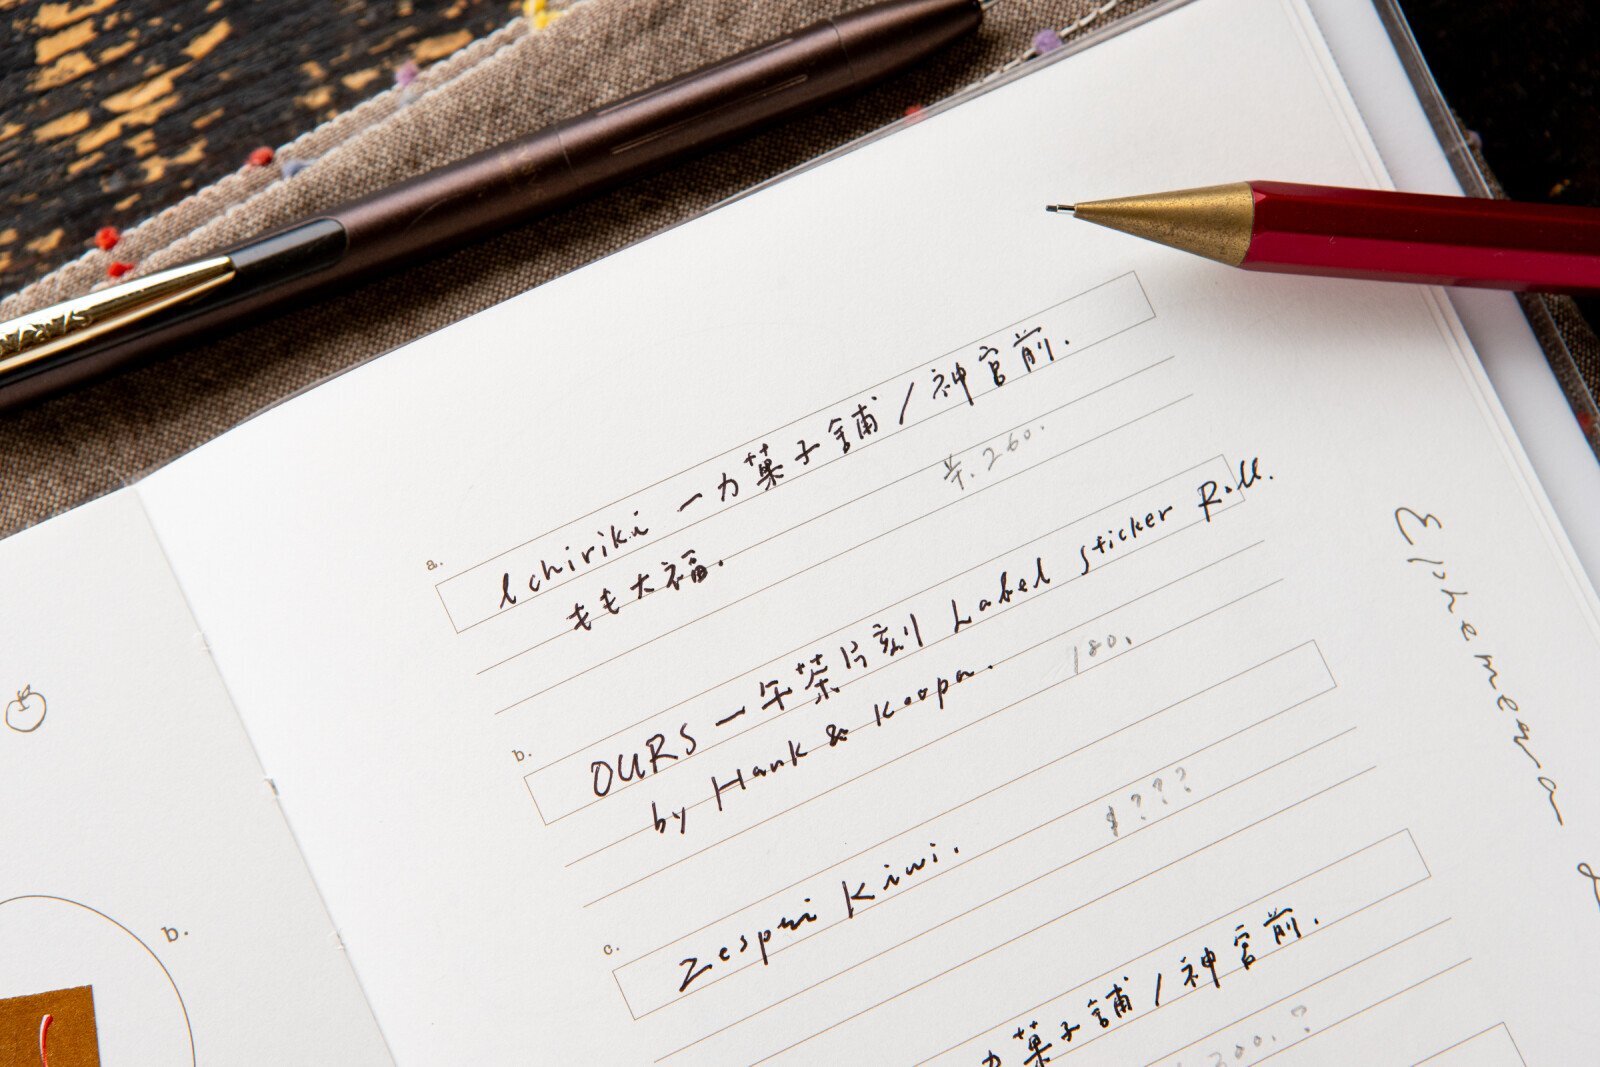 b.
a.
Ichiriki 一力菓子舗 / 神宮前.
もも大福.
羊.260.
b.
OURS 一午茶片刻 Label Sticker Roll.
by Hank & Koopa.
180.
c.
Zespri Kiwi.
$???
力菓子舗 / 神宮前.
300.?
Ephemera